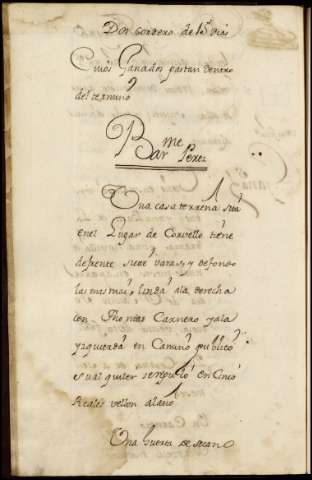 Dos corderos de 15 dias
Cuios Ganados pastan dentro
del termino
Bar.me Perez
Una casa terrena sita
en el Lugar de Corvello tiene
de frente siete varas, y de fondo
las mismas, linda ala derecha
con Thomas Carnero yala
yzquierda en Camino publico
su alquiler se reguló en Cinco
Reales vellon al año
Una huerta de secano